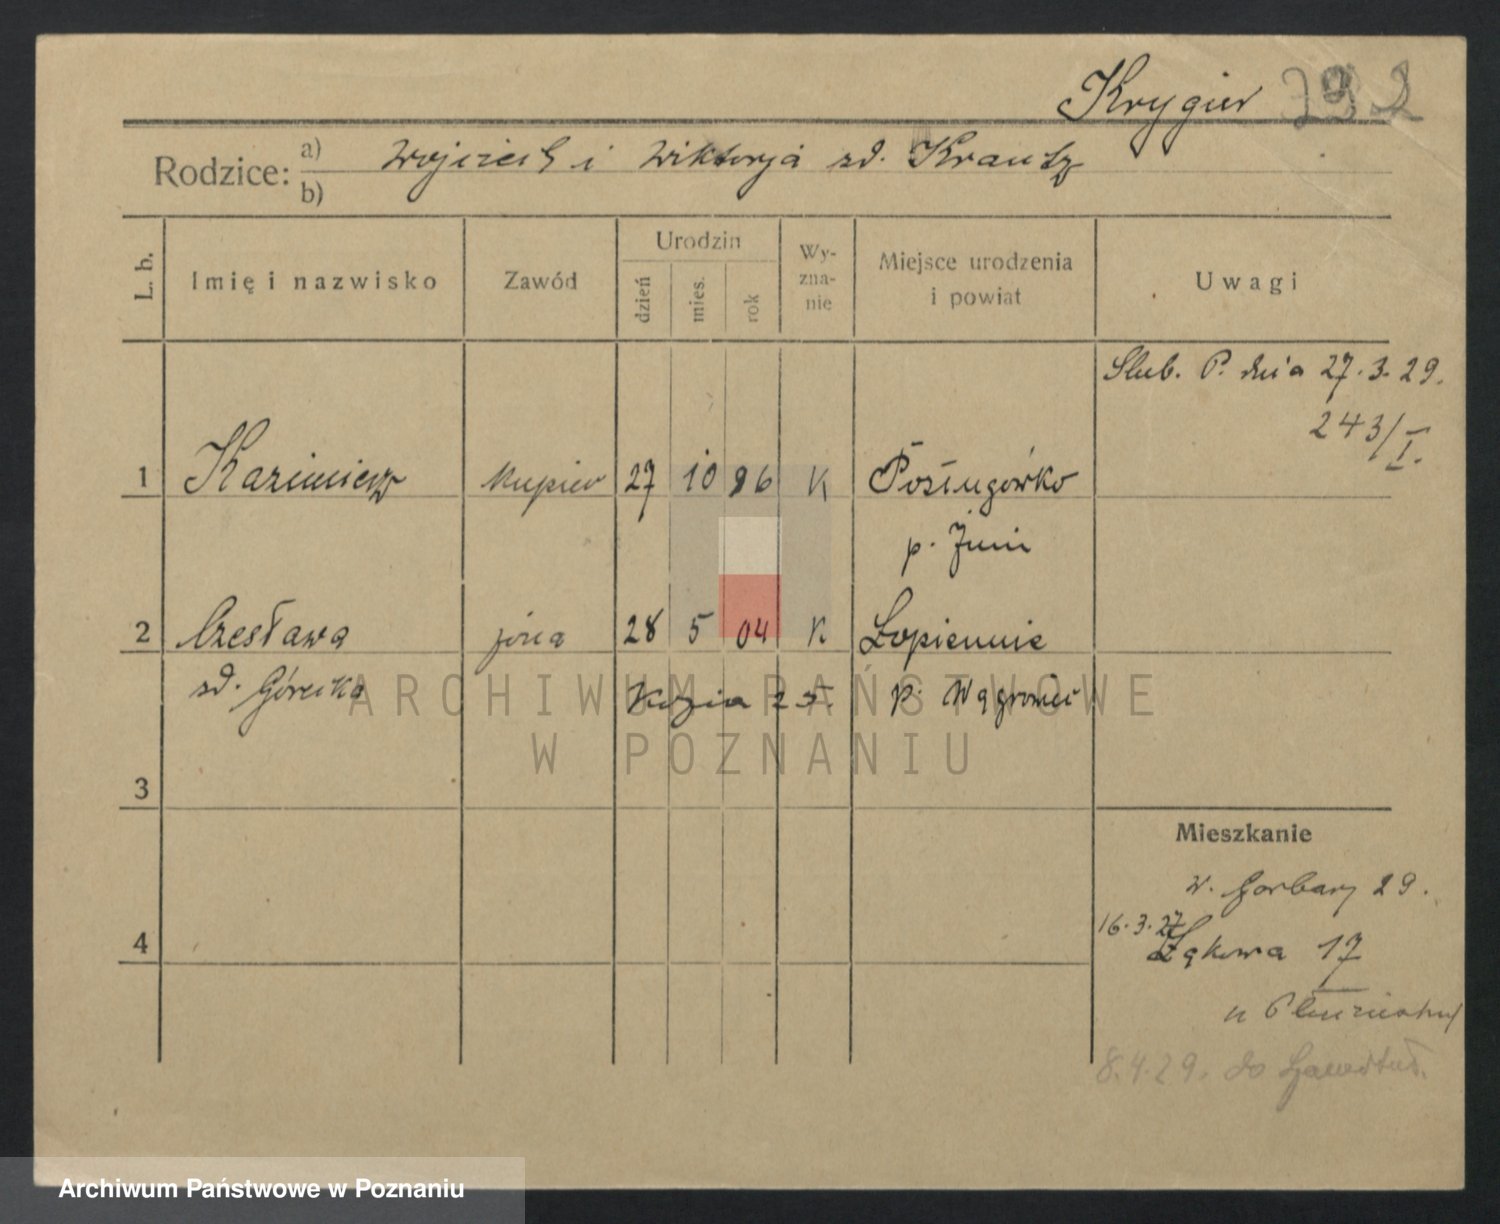 Krygier 292
Rodzice: a) Wojciech i Wiktorja zd. Krantz
b)
L. b. Imię i nazwisko Zawód Urodzin dzień mies. rok Wy-zna-nie Miejsce urodzenia i powiat Uwagi
Slub. P. dnia 27.3.29.
243/I.
1 Kazimierz kupiec 27 10 96 K
p. Żnin
2 Czesława żona 28 5 04 K Łopiennie
zd. Górecka Kozia 25. p. Wągrowiec
3
Mieszkanie
W. Garbary 29.
16.3.27
4 Łąkowa 17
u
8.4.29. do
ARCHIWUM PAŃSTWOWE
W POZNANIU
Archiwum Państwowe w Poznaniu